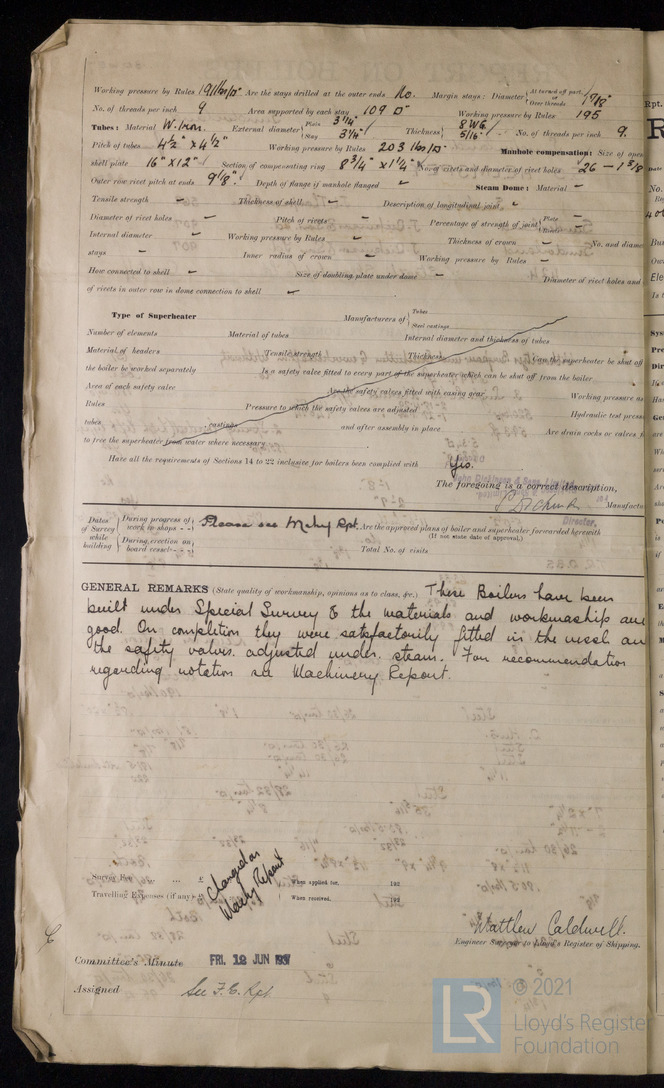 Working pressure by Rules 191 lbs/□" Are the stays drilled at the outer ends No. Margin stays: Diameter { At turned off part, or Over threads 1 7/8"
No. of threads per inch 9 Area supported by each stay 109 □" Working pressure by Rules 195
Tubes: Material W. Iron. External diameter { Plain 3 1/4" Stay 3 1/4" Thickness { 8 WG. 5/16" No. of threads per inch 9.
Pitch of tubes 4 1/2" x 4 1/2" Working pressure by Rules 203 lbs/□" Manhole compensation: Size of open
shell plate 16" x 12" Section of compensating ring 8 3/4" x 1 1/4" No. of rivets and diameter of rivet holes 26 – 1 3/8
Outer row rivet pitch at ends 9 1/8" Depth of flange if manhole flanged – Steam Dome: Material –
Tensile strength – Thickness of shell – Description of longitudinal joint –
Diameter of rivet holes – Pitch of rivets – Percentage of strength of joint { Plate – Rivets –
Internal diameter – Working pressure by Rules – Thickness of crown – No. and diame
stays – Inner radius of crown – Working pressure by Rules –
How connected to shell – Size of doubling plate under dome – Diameter of rivet holes and
of rivets in outer row in dome connection to shell –
Type of Superheater Manufacturers of { Tubes Steel castings
Number of elements Material of tubes Internal diameter and thickness of tubes
Material of headers Tensile strength Thickness Can the superheater be shut off
the boiler be worked separately Is a safety valve fitted to every part of the superheater which can be shut off from the boiler
Area of each safety valve Are the safety valves fitted with easing gear Working pressure as
Rules Pressure to which the safety valves are adjusted Hydraulic test press
tubes castings and after assembly in place Are drain cocks or valves f
to free the superheater from water where necessary
Have all the requirements of Sections 14 to 22 inclusive for boilers been complied with Yes.
John Dickinson & Sons, Limited
The foregoing is a correct description,
Manufactu
Director,
Dates of Survey while building { During progress of work in shops - - Please see Mchy Rpt. Are the approved plans of boiler and superheater forwarded herewith
(If not state date of approval.)
During erection on board vessel - - Total No. of visits
GENERAL REMARKS (State quality of workmanship, opinions as to class, &c.) These Boilers have been
built under Special Survey & the materials and workmaship are
good. On completion they were satisfactorily fitted in the vessel an
the safety valves adjusted under steam. For recommendation
regarding notation see Machinery Report.
Survey Fee ... ... £ Charged on When applied for, 192
Travelling Expenses (if any) £ Mchy Report When received, 192
Matthew Caldwell.
Engineer Surveyor to Lloyd's Register of Shipping.
Committee's Minute FRI. 12 JUN
Assigned See F.E. Rpt
LR © 2021
Lloyd's Register
Foundation